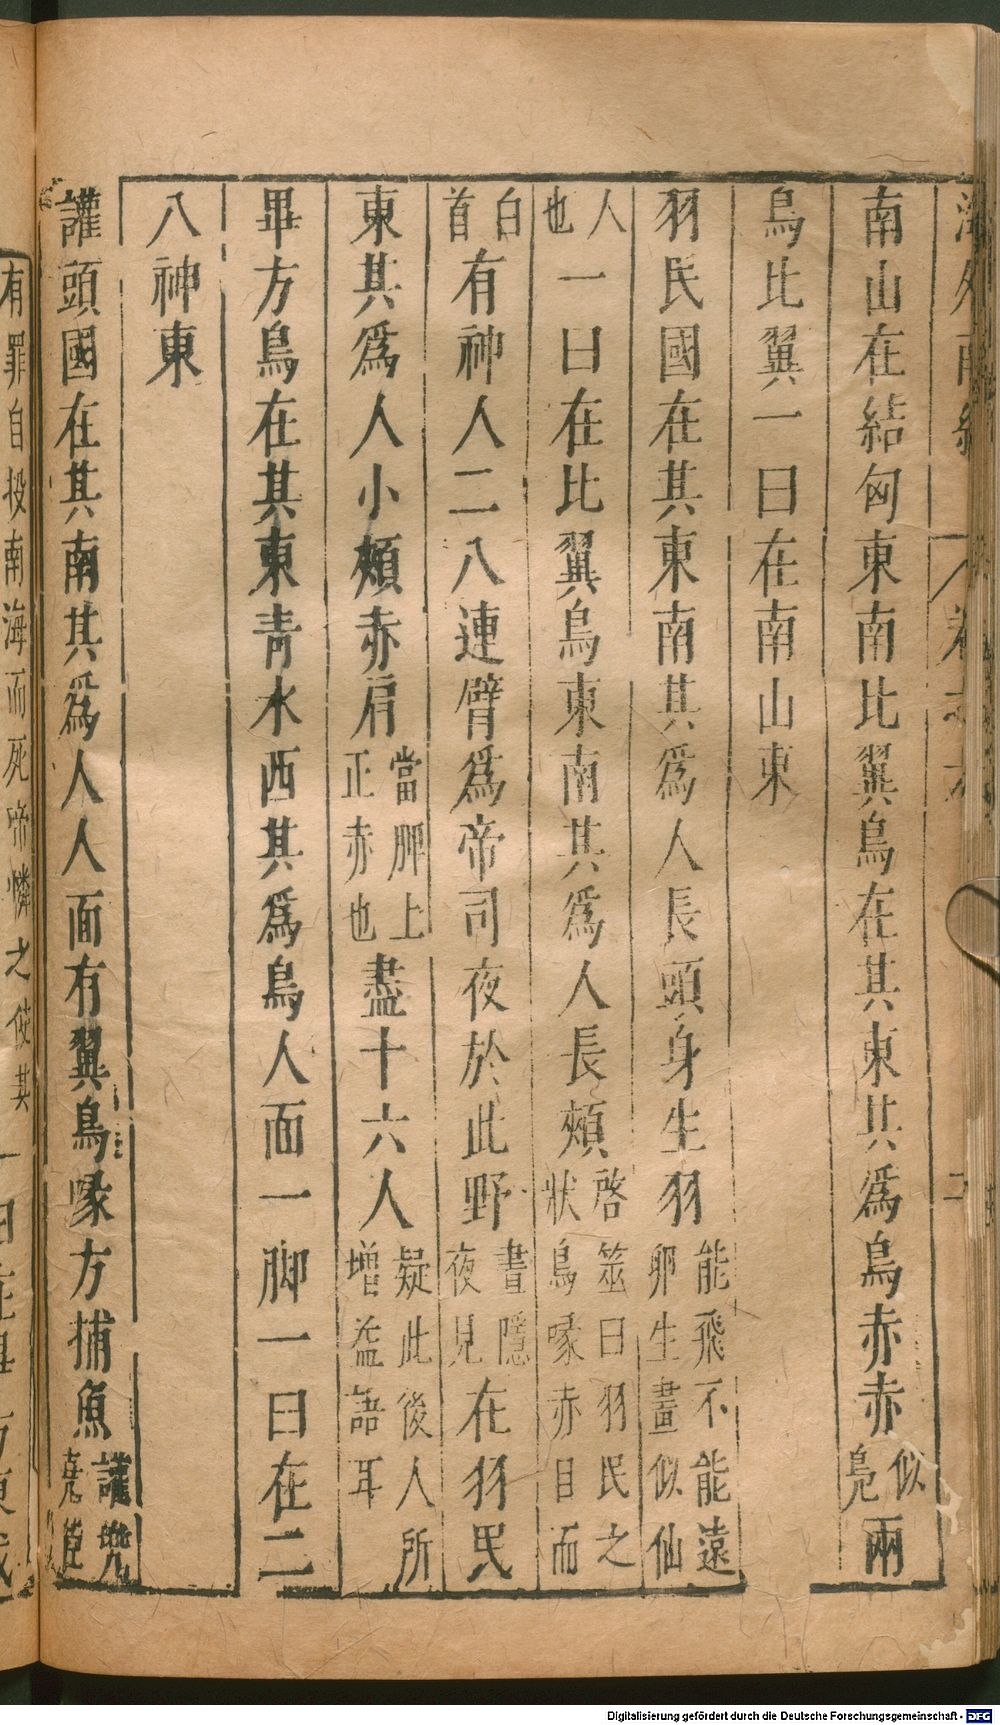 南山在結匈東南比翼鳥在其東其爲鳥赤赤似鳧兩
鳥比翼一曰在南山東
羽民國在其東南其爲人長頭身生羽能飛不能遠卵生畫似仙
人也一曰在比翼鳥東南其爲人長頰啓筮曰羽民之狀鳥喙赤目而
白首有神人二八連臂爲帝司夜於此野晝隱夜見在羽民
東其爲人小頰赤肩當胛上正赤也盡十六人疑此後人所增益語耳
畢方鳥在其東青水西其爲鳥人面一脚一曰在二
八神東
讙頭國在其南其爲人人面有翼鳥喙方捕魚讙兜堯臣
有罪自投南海而死帝憐之使其
Digitalisierung gefördert durch die Deutsche Forschungsgemeinschaft - DFG